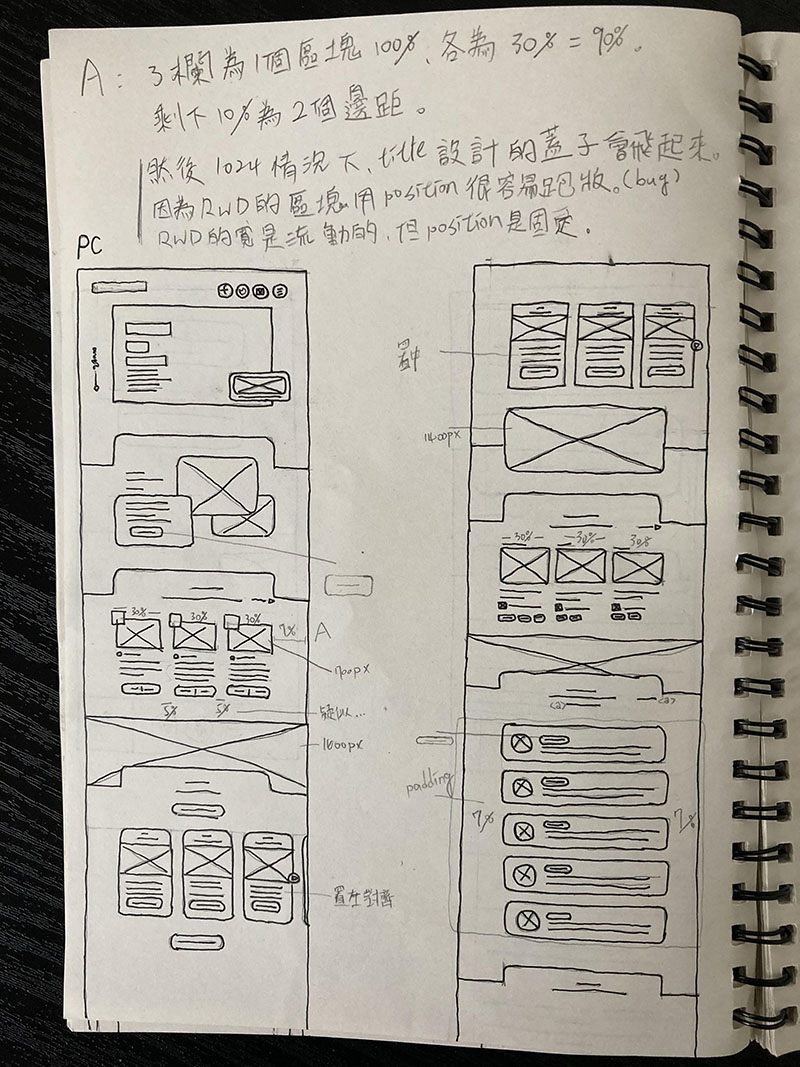 A: 3欄為1個區塊100%、各為30% = 90%。
剩下10%為2個邊距。
然後1024情況下、title設計的蓋子會飛起來。
因為RWD的區塊用position很容易跑版。(bug)
RWD的寬是流動的、但position是固定。
PC
30% 30% 30%
7% A
700px
5% 5% 疑似...
1600px
置左對齊
置中
1400px
30% 30% 30%
(a) (a)
padding
7% 7%